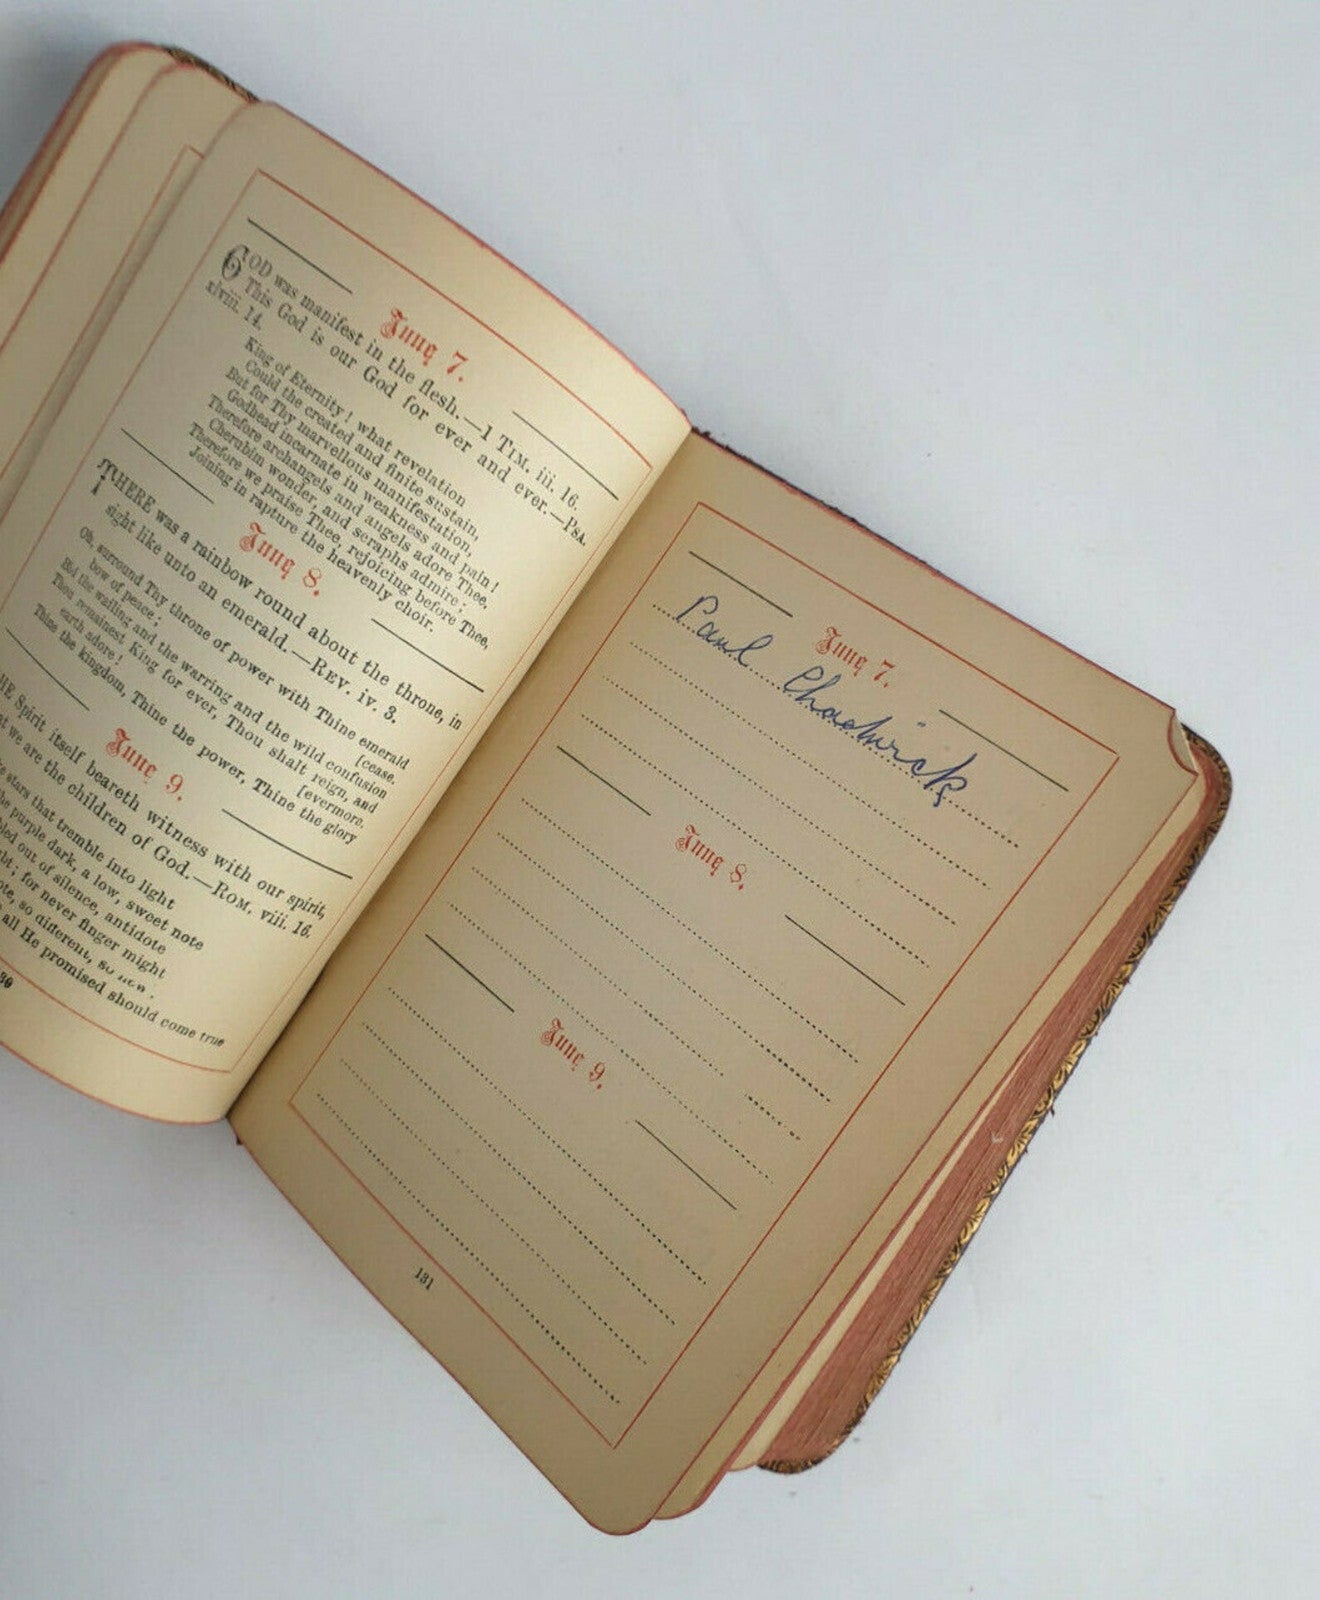 June 7.
GOD was manifest in the flesh.—1 TIM. iii. 16.
This God is our God for ever and ever.—PSA.
xlviii. 14.
King of Eternity! what revelation
Could the created and finite sustain,
But for Thy marvellous manifestation,
Godhead incarnate in weakness and pain!
Therefore archangels and angels adore Thee,
Cherubim wonder, and seraphs admire;
Therefore we praise Thee, rejoicing before Thee,
Joining in rapture the heavenly choir.
June 8.
THERE was a rainbow round about the throne, in
sight like unto an emerald.—REV. iv. 3.
Oh, surround Thy throne of power with Thine emerald
bow of peace; [cease.
Bid the wailing and the warring and the wild confusion
Thou remainest King for ever, Thou shalt reign, and
earth adore! [evermore.
Thine the kingdom, Thine the power, Thine the glory
June 9.
HE Spirit itself beareth witness with our spirit,
at we are the children of God.—ROM. viii. 16.
stars that tremble into light
purple dark, a low, sweet note
out of silence, antidote
for never finger might
so different, so new
all He promised should come true
30
June 7.
Paul Chadwick
June 8.
June 9.
131